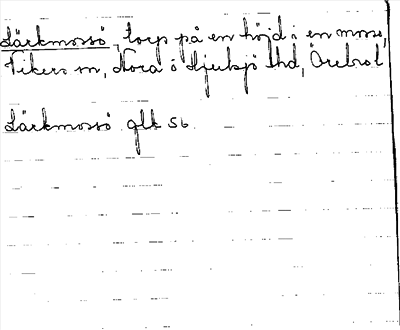 Lärkmossö, torp på en höjd i en mosse,
Vikers sn, Nora o Hjulsjö thd, Örebro l
Lärkmossö glk 56